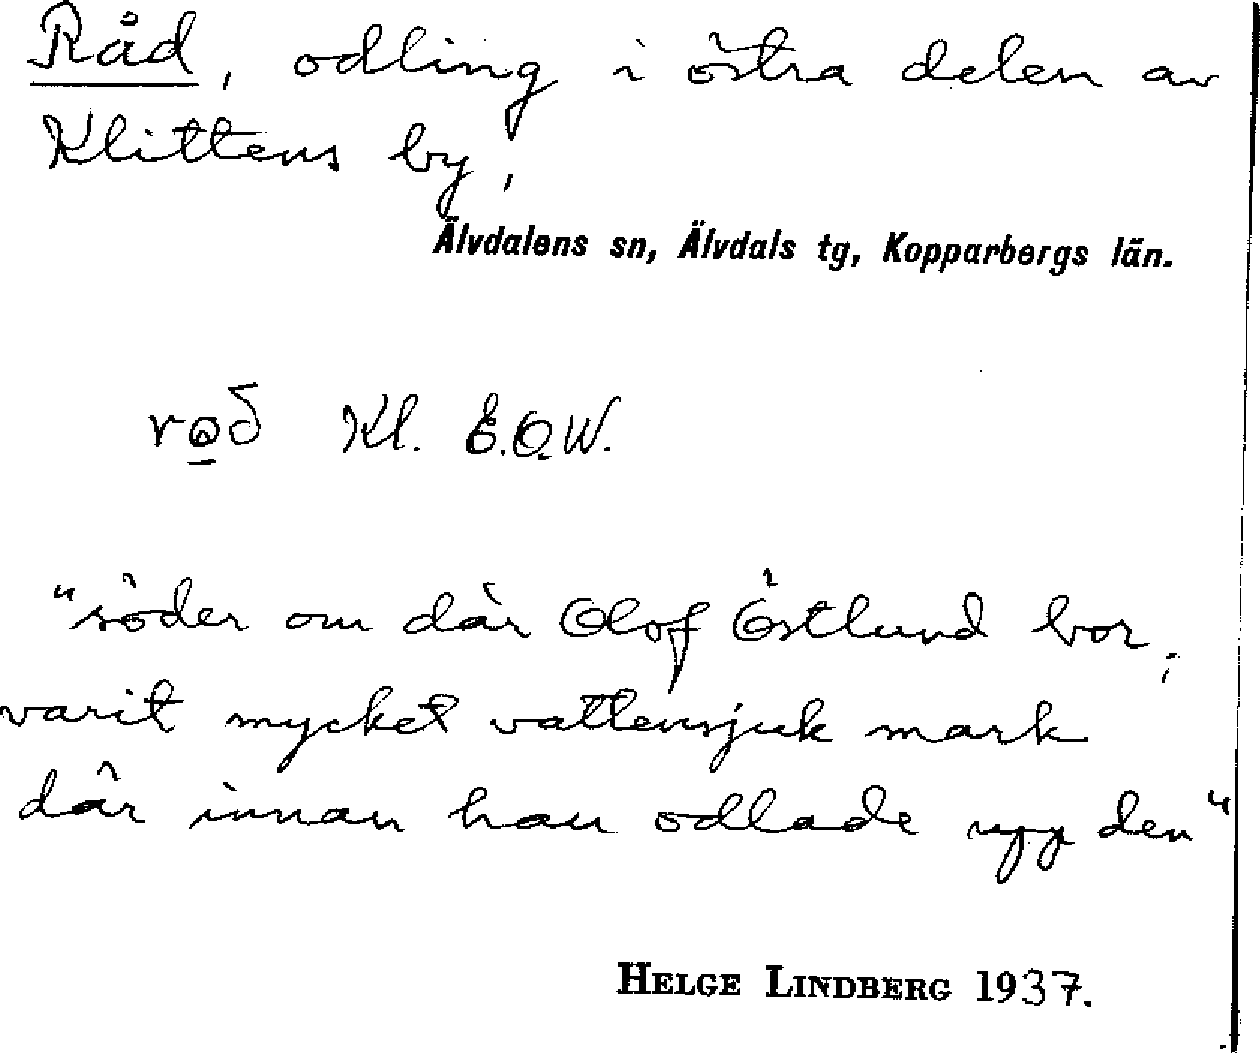 Råd, odling i östra delen av
Klittens by,
Älvdalens sn, Älvdals tg, Kopparbergs län.
Kl. E.O.W.
"söder om där Olof Östlund bor;
varit mycket vattensjuk mark
där innan han odlade upp den"
HELGE LINDBERG 1937.